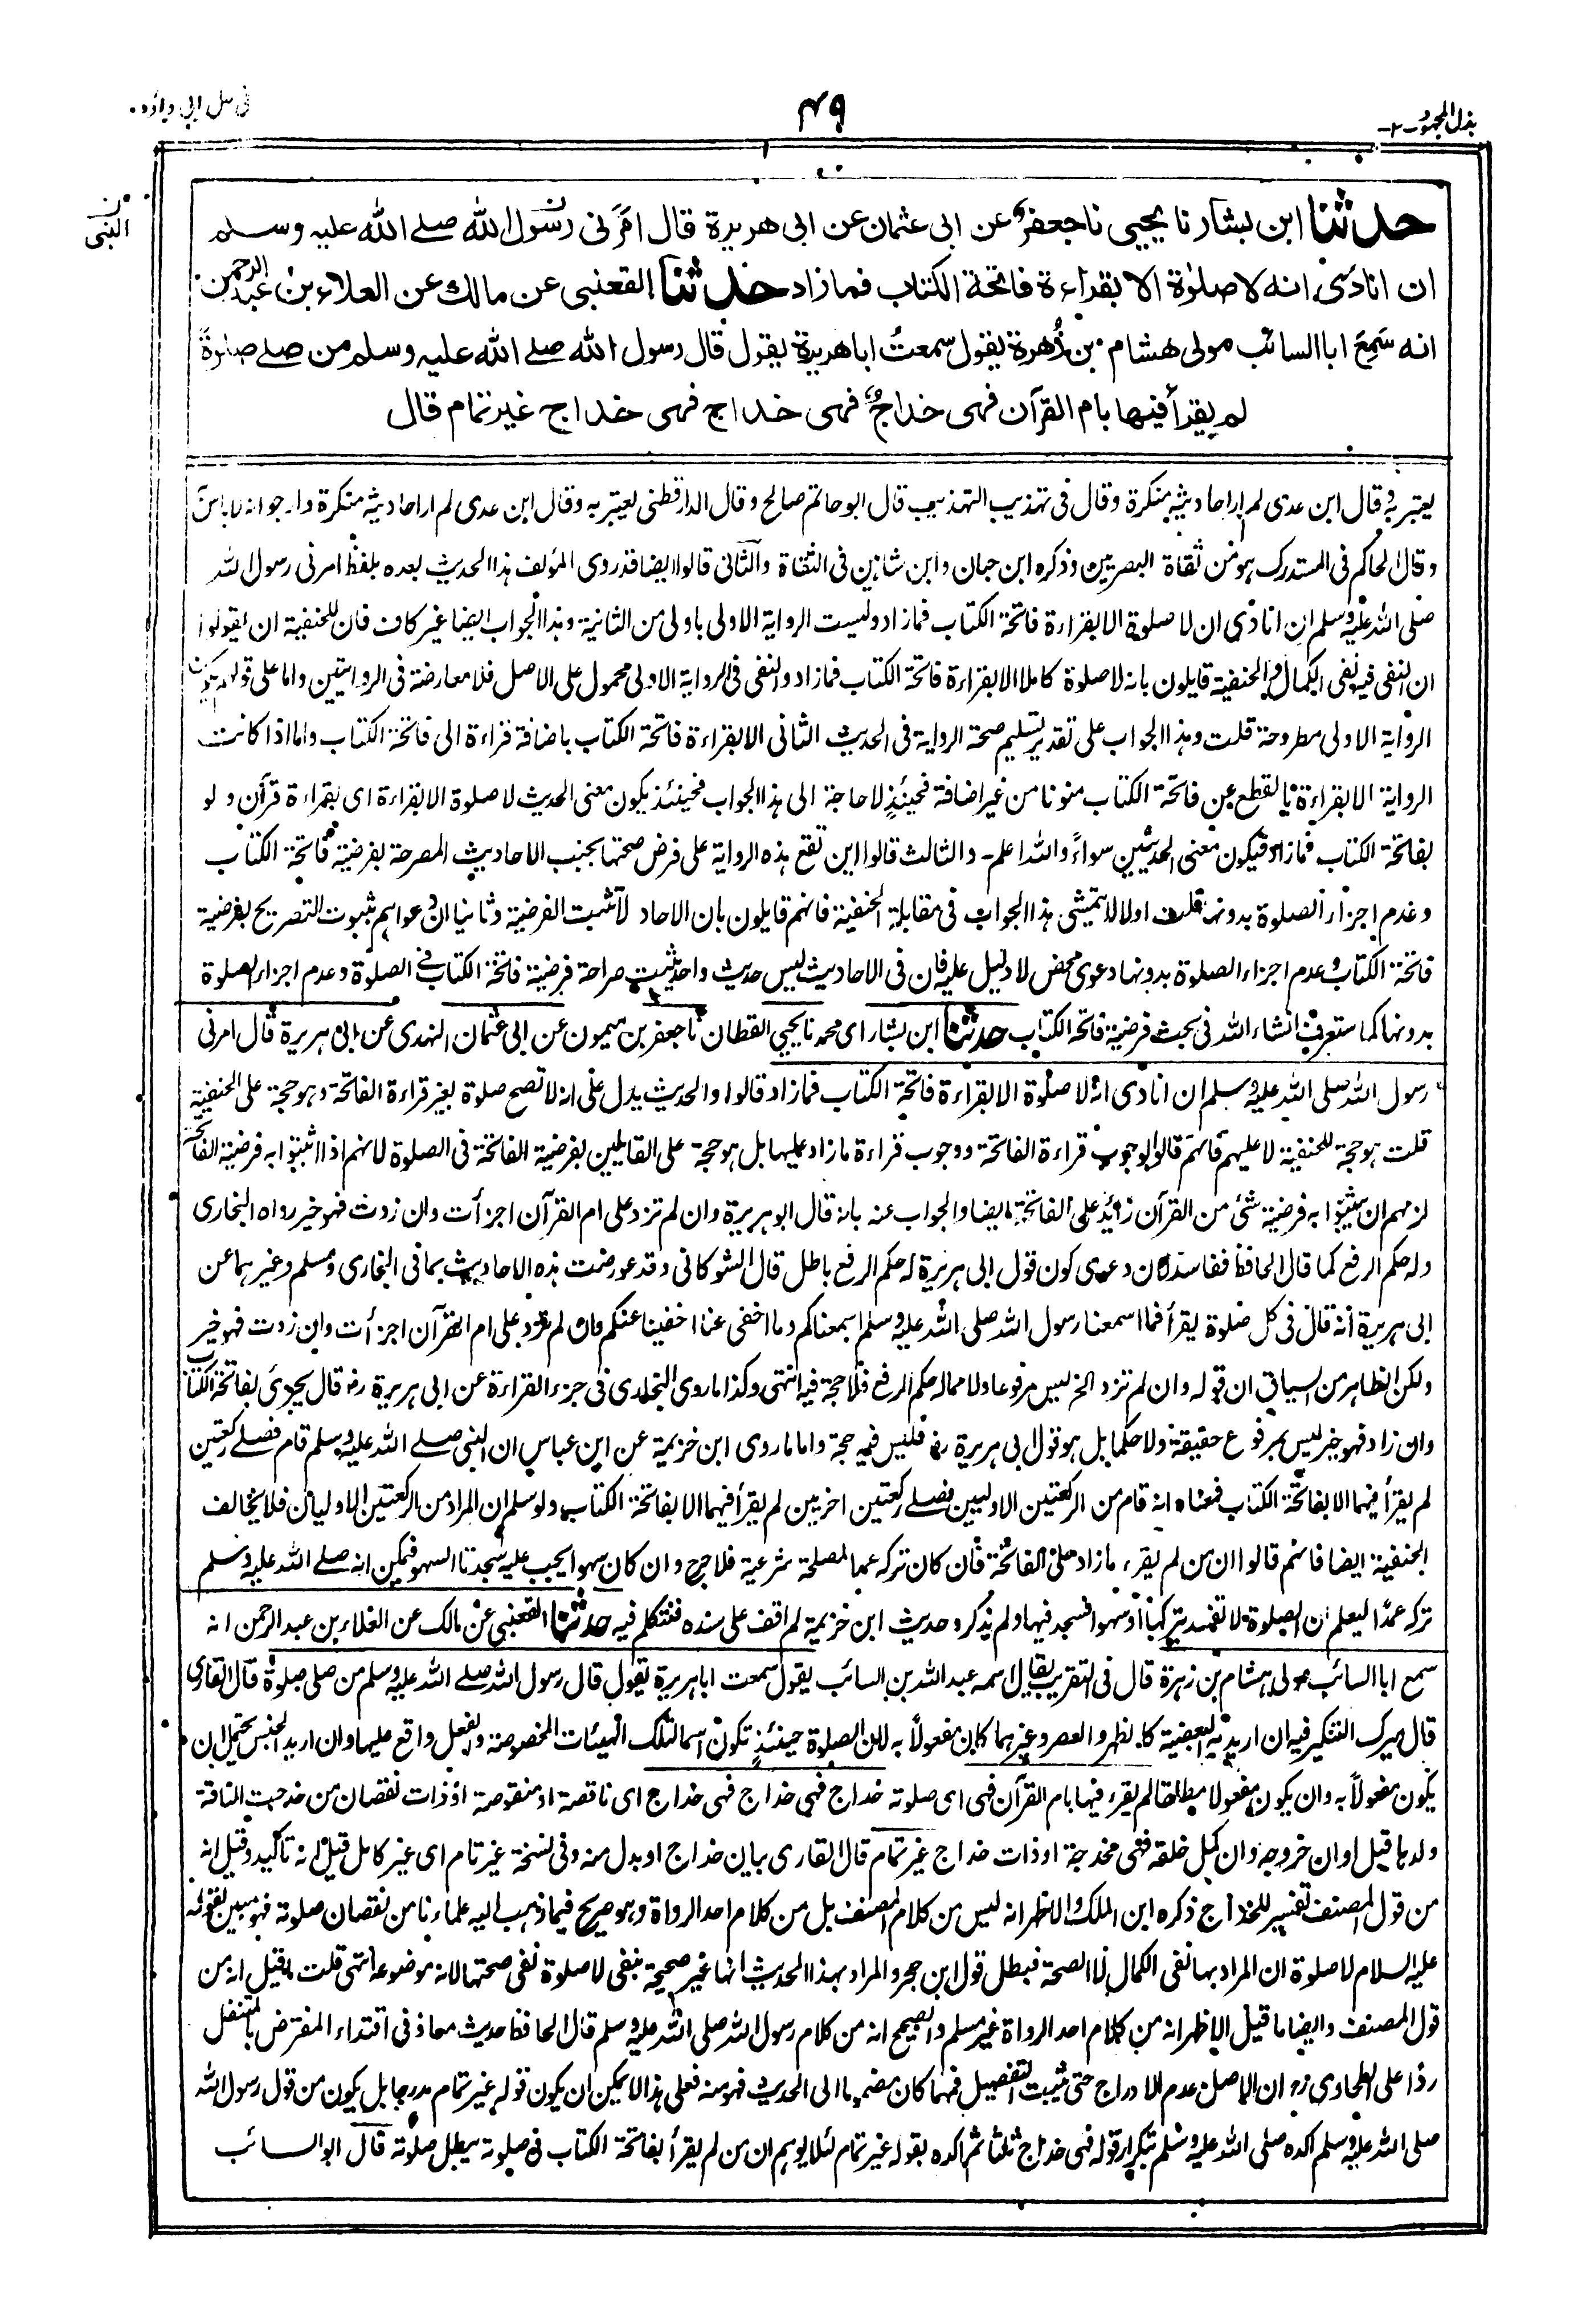 بذل المجهود -٢-
٤٩
في حل ابي داؤد
حدثنا ابن بشار نا يحيى نا جعفر عن ابى عثمان عن ابى هريرة قال امرنى رسول الله صلى الله عليه وسلم
ن النبى
ان انادى انه لا صلوة الا بقراءة فاتحة الكتاب فما زاد حدثنا القعنبى عن مالك عن العلاء بن عبد الرحمن
انه سمع ابا السائب مولى هشام بن زهرة يقول سمعت ابا هريرة يقول قال رسول الله صلى الله عليه وسلم من صلى صلوة
لم يقرأ فيها بام القرآن فهى خداج فهى خداج فهى خداج غير تمام قال
يعتبر به وقال ابن عدى لم ار احاديثه منكرة وقال فى تهذيب التهذيب قال ابو حاتم صالح وقال الدارقطنى يعتبر به وقال ابن عدى لم ار احاديثه منكرة وارجو انه لا باس
وقال الحاكم فى المستدرك هو من ثقاة البصريين وذكره ابن حبان وابن شاهين فى الثقاة والثانى قالوا ايضا قد روى المؤلف هذا الحديث بعده بلفظ امرنى رسول الله
صلى الله عليه وسلم ان انادى ان لا صلوة الا بقراءة فاتحة الكتاب فما زاد وليست الرواية الاولى باولى من الثانية وهذا الجواب ايضا غير كاف فان للحنفية ان يقولوا
ان النفى فيه نفى الكمال والحنفية قايلون بانه لا صلوة كاملا الا بقراءة فاتحة الكتاب فما زاد والنفى فى الرواية الاولى محمول على الاصل فلا معارضة فى الروايتين واما على قولهم يكون
الرواية الاولى مطروحة قلت وهذا الجواب على تقدير تسليم صحة الرواية فى الحديث الثانى الا بقراءة فاتحة الكتاب باضافة قراءة الى فاتحة الكتاب واما اذا كانت
الرواية الا بقراءة بالقطع عن فاتحة الكتاب منونا من غير اضافة فحينئذ لا حاجة الى هذا الجواب فحينئذ يكون معنى الحديث لا صلوة الا بقراءة اى بقراءة قرآن ولو
بفاتحة الكتاب فما زاد فيكون معنى الحديثين سواء والله اعلم - والثالث قالوا اين تقع هذه الرواية على فرض صحتها بجنب الاحاديث المصرحة بفرضية فاتحة الكتاب
وعدم اجزاء الصلوة بدونها قلت اولا لا يتمشى هذا الجواب فى مقابلة الحنفية فانهم قايلون بان الاحاد لا تثبت الفرضية وثانيا ان دعواهم ثبوت التصريح بفرضية
فاتحة الكتاب وعدم اجزاء الصلوة بدونها دعوى محض لا دليل عليه فان فى الاحاديث ليس حديث واحد يثبت صراحة فرضية فاتحة الكتاب فى الصلوة وعدم اجزاء الصلوة
بدونها كما ستعرف انشاء الله فى بحث فرضية فاتحة الكتاب حدثنا ابن بشار اى محمد نا يحيى القطان نا جعفر بن ميمون عن ابى عثمان النهدى عن ابى هريرة قال امرنى
رسول الله صلى الله عليه وسلم ان انادى انه لا صلوة الا بقراءة فاتحة الكتاب فما زاد قالوا والحديث يدل على انه لا تصح صلوة بغير قراءة الفاتحة وهو حجة على الحنفية
قلت هو حجة للحنفية لا عليهم فانهم قالوا بوجوب قراءة الفاتحة ووجوب قراءة ما زاد عليها بل هو حجة على القايلين بفرضية الفاتحة فى الصلوة لانهم اذا اثبتوا به فرضية الفاتحة
لزمهم ان يثبتوا به فرضية شئ من القرآن زائد على الفاتحة ايضا والجواب عنه بانه قال ابو هريرة وان لم تزد على ام القرآن اجزأت وان زدت فهو خير رواه البخارى
وله حكم الرفع كما قال الحافظ ففاسد لان دعوى كون قول ابى هريرة له حكم الرفع باطل قال الشوكانى وقد عورضت هذه الاحاديث بما فى البخارى ومسلم وغيرهما عن
ابى هريرة انه قال فى كل صلوة يقرأ فما اسمعنا رسول الله صلى الله عليه وسلم اسمعناكم وما اخفى عنا اخفينا عنكم وان لم تزد على ام القرآن اجزأت وان زدت فهو خير
ولكن الظاهر من السياق ان قوله وان لم تزد الخ ليس مرفوعا ولا مما له حكم الرفع فلا حجة فيه انتهى وكذا ما روى البخارى فى جزء القراءة عن ابى هريرة رض قال يجزئ بفاتحة الكتاب
وان زاد فهو خير ليس بمرفوع حقيقة ولا حكما بل هو قول ابى هريرة رض فليس فيه حجة واما ما روى ابن خزيمة عن ابن عباس ان النبى صلى الله عليه وسلم قام فصلى ركعتين
لم يقرأ فيهما الا بفاتحة الكتاب فمعناه انه قام من الركعتين الاوليين فصلى ركعتين اخريين لم يقرأ فيهما الا بفاتحة الكتاب ولو سلم ان المراد من الركعتين الاوليان فلا يخالف
الحنفية ايضا فانهم قالوا ان من لم يقرء ما زاد على الفاتحة فان كان تركه عمدا لمصلحة شرعية فلا حرج وان كان سهوا يجب عليه سجدتا السهو فيمكن انه صلى الله عليه وسلم
تركه عمدا ليعلم ان الصلوة لا تفسد بتركها او سهوا فسجد فيها ولم يذكر وحديث ابن خزيمة لم اقف على سنده فنتكلم فيه حدثنا القعنبى عن مالك عن العلاء بن عبد الرحمن انه
سمع ابا السائب مولى هشام بن زهرة قال فى التقريب يقال اسمه عبد الله بن السائب يقول سمعت ابا هريرة يقول قال رسول الله صلى الله عليه وسلم من صلى صلوة قال القارى
قال ميرك التنكير فيه ان اريد به البعضية كالظهر والعصر وغيرهما كان مفعولا به لان الصلوة حينئذ تكون اسما لتلك الهيئات المخصوصة والفعل واقع عليها وان اريد الجنس يحتمل ان
يكون مفعولا به وان يكون مفعولا مطلقا لم يقرء فيها بام القرآن فهى اى صلوته خداج فهى خداج فهى خداج اى ناقصة او منقوصة او ذات نقصان من خدجت الناقة
ولدها قبل اوان خروجه وان كمل خلقه فهى مخدجة او ذات خداج غير تمام قال القارى بيان خداج او بدل منه وفى نسخة غير تام اى غير كامل قيل انه تأكيد وقيل انه
من قول المصنف تفسير للخداج ذكره ابن الملك والاظهر انه ليس من كلام المصنف بل من كلام احد الرواة وهو صريح فيما ذهب اليه علماءنا من نقصان صلوته فهو مبين لقوله
عليه السلام لا صلوة ان المراد بها نفى الكمال لا الصحة فبطل قول ابن حجر والمراد بهذا الحديث انها غير صحيحة فنفى لا صلوة نفى صحتها لانه موضوعه انتهى قلت ما قيل انه من
قول المصنف وايضا ما قيل الاظهر انه من كلام احد الرواة غير مسلم والصحيح انه من كلام رسول الله صلى الله عليه وسلم قال الحافظ حديث معاذ فى اقتداء المفترض بالمتنفل
ردا على الطحاوى رد ان الاصل عدم الادراج حتى يثبت التفصيل فمهما كان مضموما الى الحديث فهو منه فعلى هذا لا يمكن ان يكون قوله غير تمام مدرجا بل يكون من قول رسول الله
صلى الله عليه وسلم اكده صلى الله عليه وسلم بتكرار قوله فهى خداج ثلثا ثم اكده بقوله غير تمام لئلا يوهم ان من لم يقرأ بفاتحة الكتاب فى صلوته يبطل صلوته قال ابو السائب